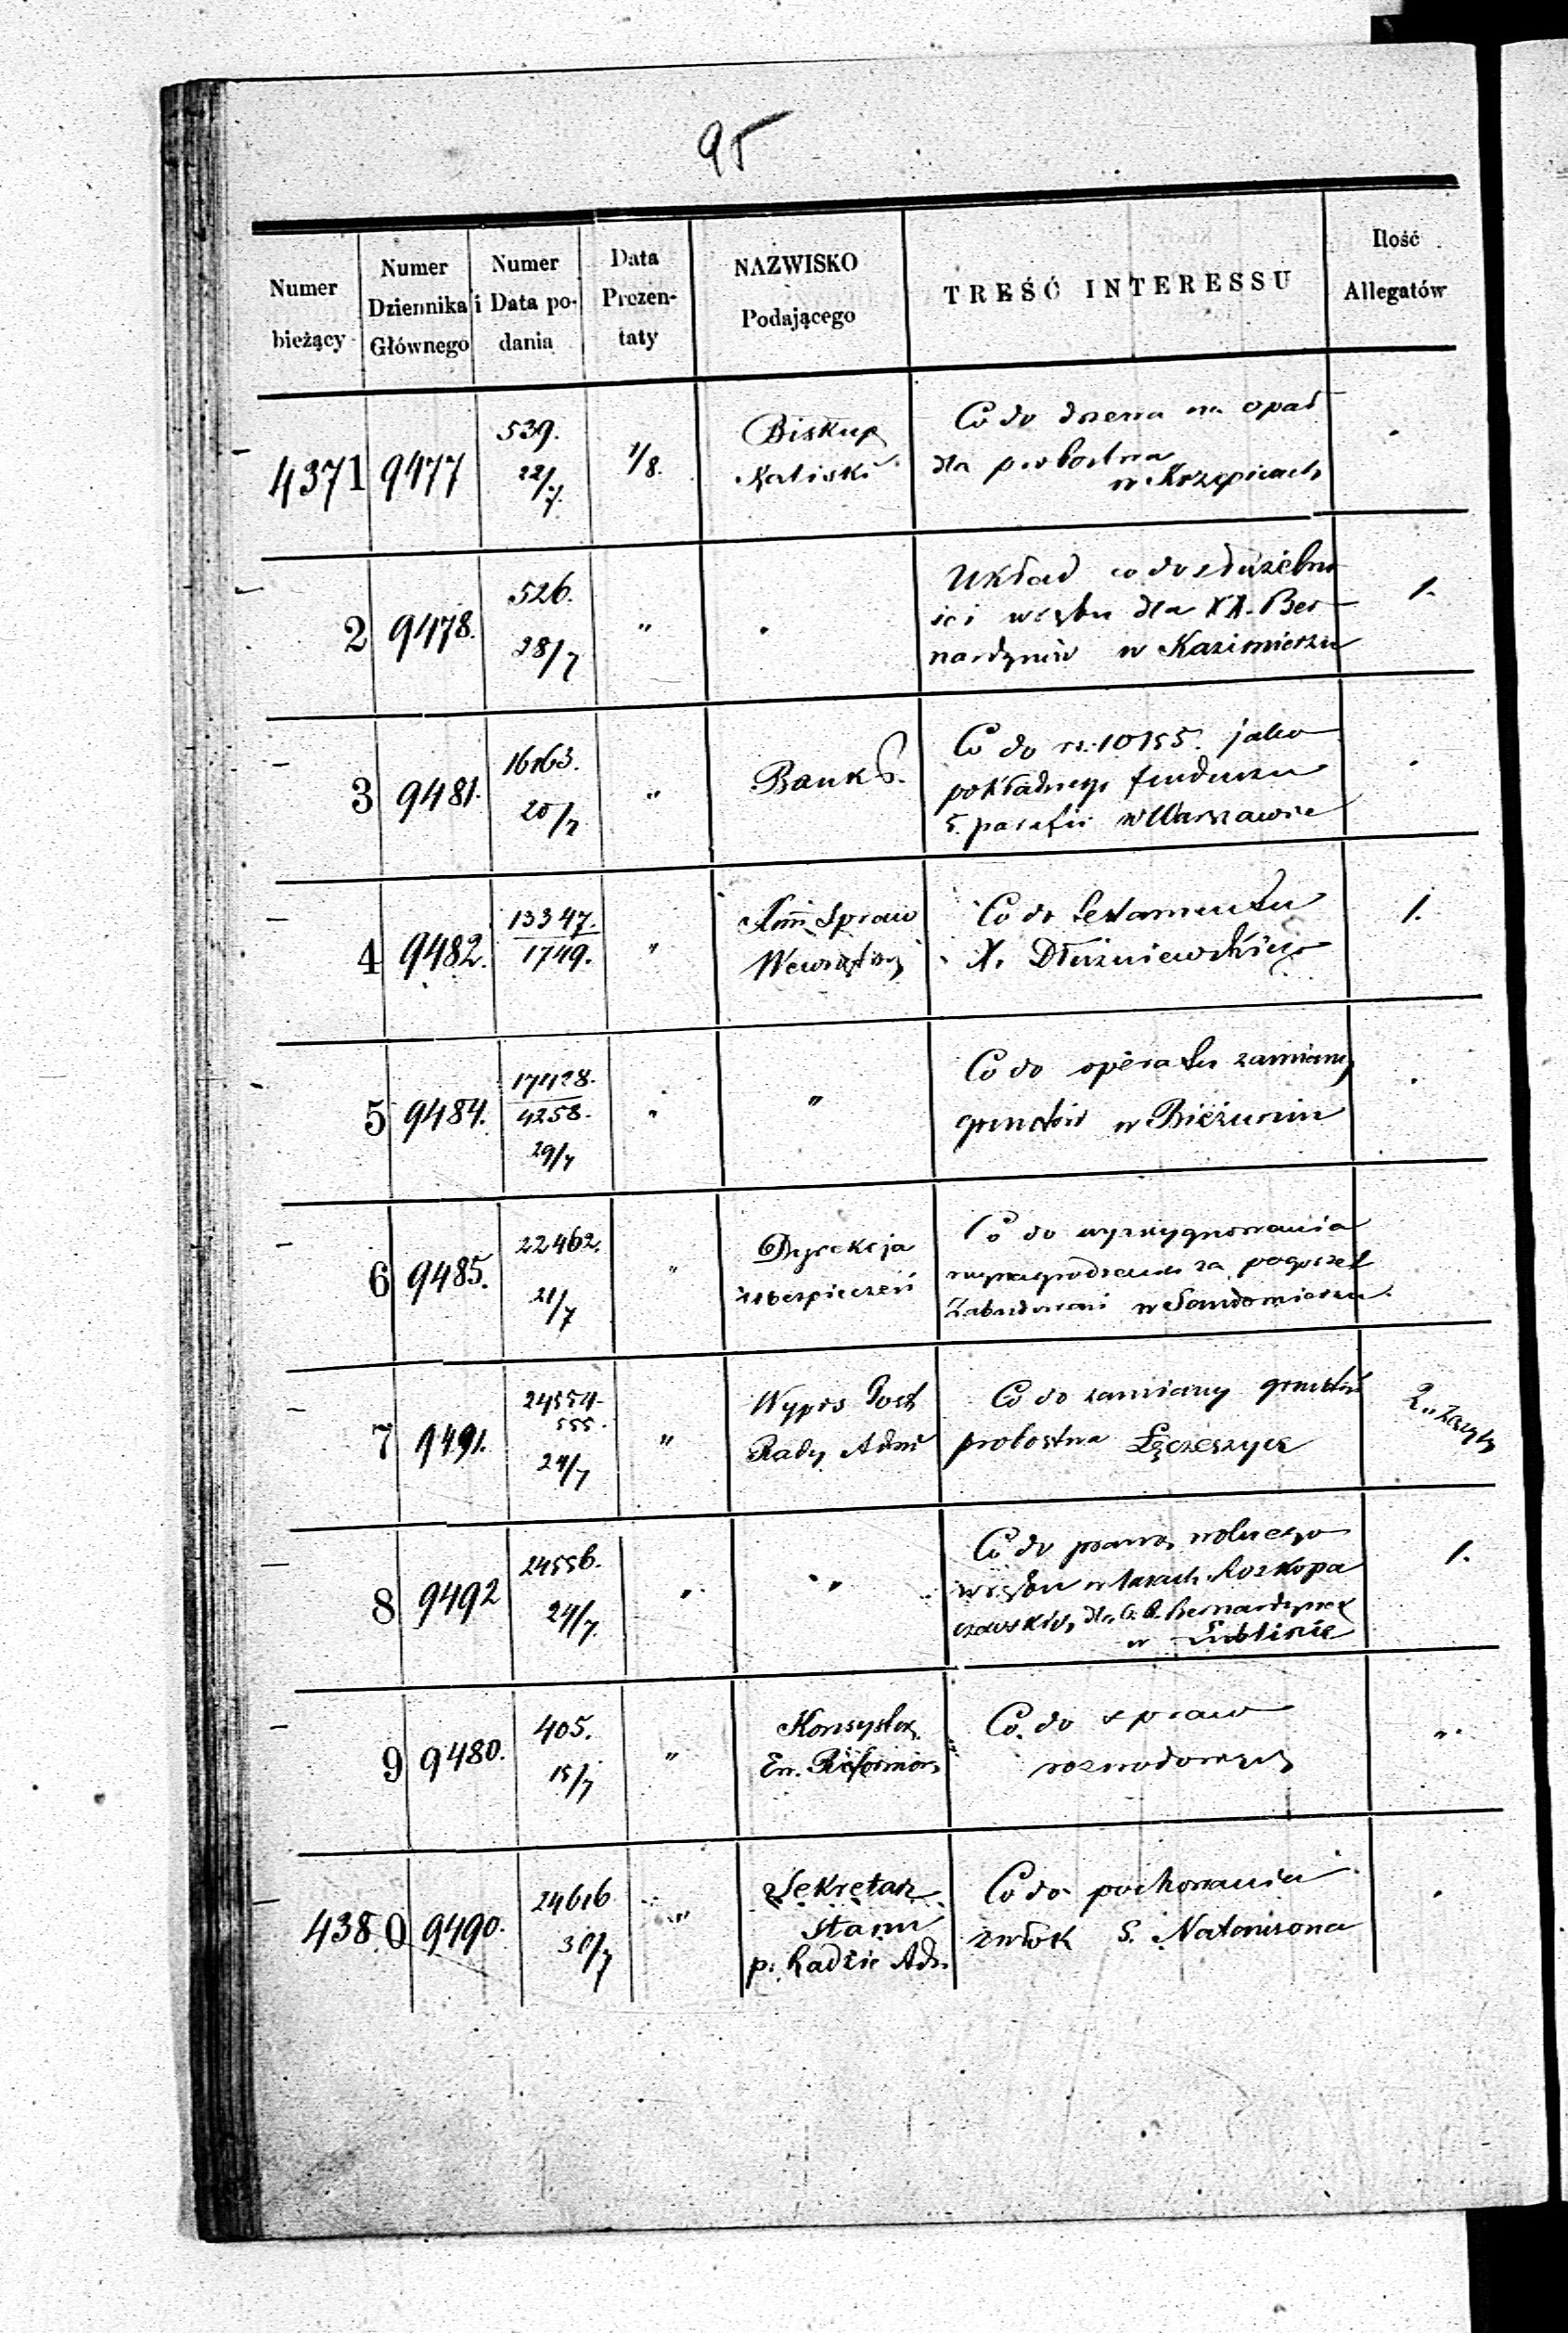 95
Numer bieżący
Numer Dziennika Głównego
Numer i Data podania
Data Prezentaty
NAZWISKO Podającego
TREŚĆ INTERESSU
Ilość Allegatów
4371 9477 539. 22/7. 1/8.
Biskup
Kaliski
Co do drzewa na opał
dla probostwa
w Krzepicach
2 9478. 526. 28/7 "
Układ co do służebno
ści wrębu dla XX. Ber-
nardynów w Kazimierzu
1.
3 9481. 16163. 20/7 "
Bank P.
Co do rs. 10155. jako
pokładnego funduszu
5. parafii w Warszawie
4 9482. 13347. 1749. "
Kom. Spraw
Wewnętrz
Co do testamentu
X. Dłużniewskiego
1.
5 9484. 17428. 4258. 29/7 " "
Co do operatu zamiany
gruntów w Bieżuniu
6 9485. 22462. 21/7 "
Dyrekcja
ubezpieczeń
Co do wyasygnowania
wynagrodzenia za pogorzel
Zabudowań w Sandomierzu
7 9491. 24554. 555. 24/7 "
Wypis Post
Rady Adm
Co do zamiany gruntów
probostwa Łęczeszyce
2.
8 9492 24556. 24/7. " "
Co do prawa wolnego
wrębu w lasach
dla Bernardynek
w Lublinie
1.
9 9480. 405. 15/7 "
Konsystorz
Ew. Reformow.
Co do spraw
rozwodowych
".
4380 9490. 24616 30/7 "
Sekretarz
Stanu
p. Radzie Adm.
Co do pochowania
zwłok S. Natansona